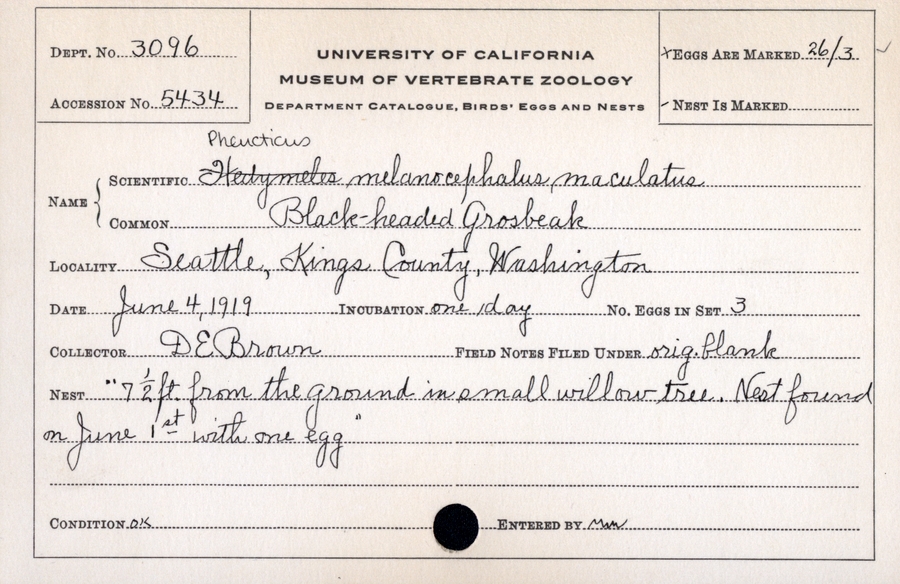 DEPT. No. 3096
ACCESSION No. 5434
UNIVERSITY OF CALIFORNIA
MUSEUM OF VERTEBRATE ZOOLOGY
DEPARTMENT CATALOGUE, BIRDS' EGGS AND NESTS
EGGS ARE MARKED 26/3
NEST IS MARKED
Pheucticus
NAME
SCIENTIFIC Hedymeles melanocephalus maculatus
COMMON Black-headed Grosbeak
LOCALITY Seattle, Kings County, Washington
DATE June 4, 1919 INCUBATION one day NO. EGGS IN SET 3
COLLECTOR D E Brown FIELD NOTES FILED UNDER orig. blank
NEST "7 1/2 ft. from the ground in small willow tree. Nest found
on June 1st with one egg"
CONDITION OK ENTERED BY